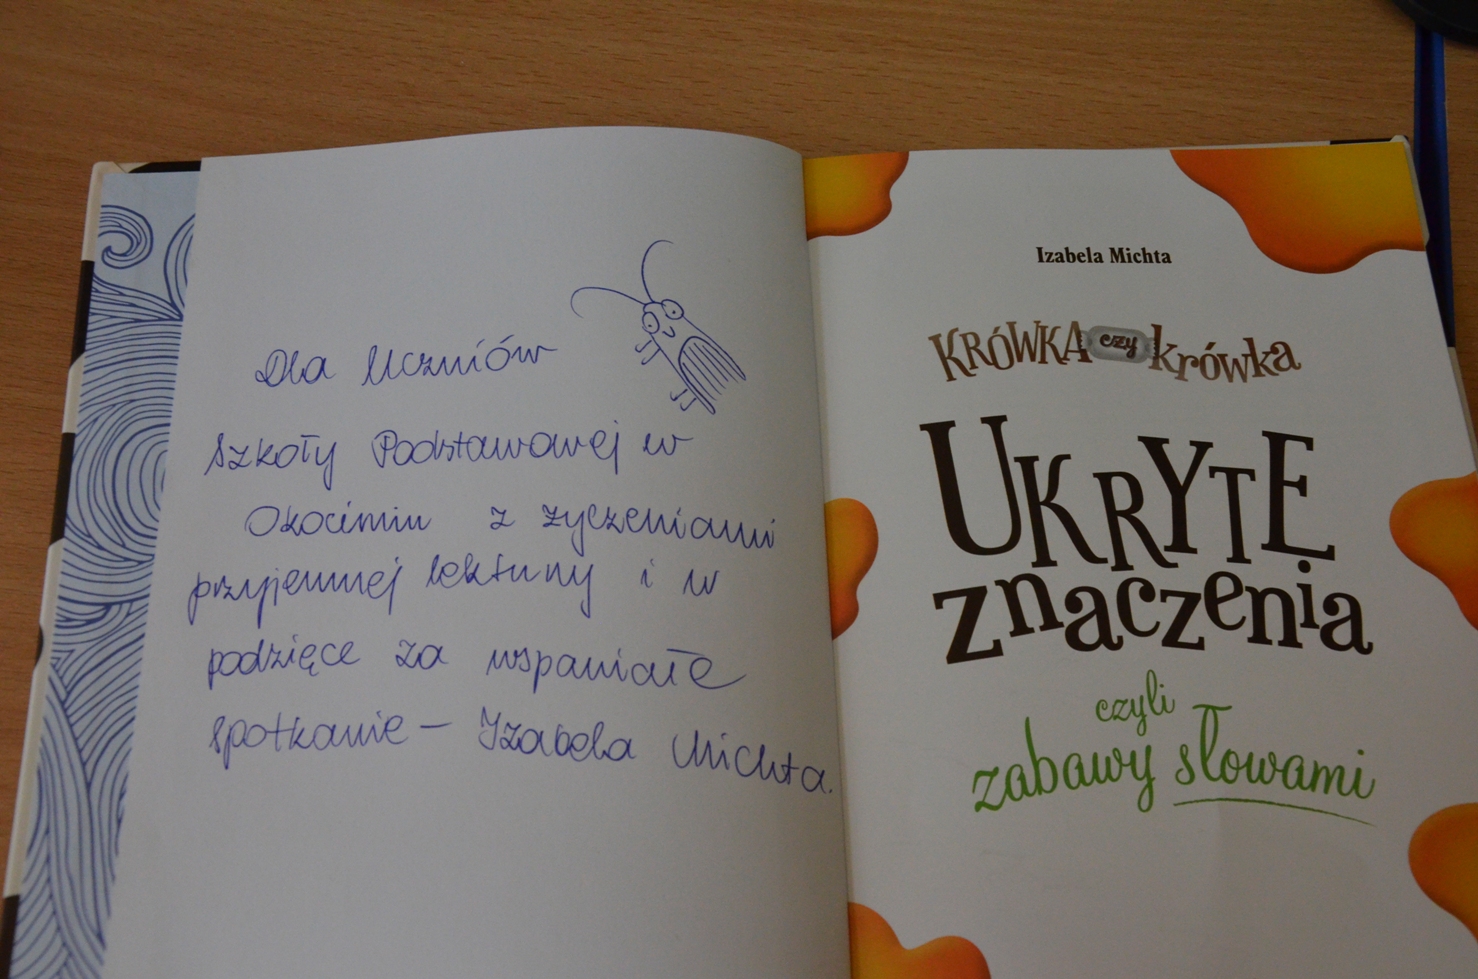 Dla Uczniów
Szkoły Podstawowej w
Okocimiu z życzeniami
przyjemnej lektury i w
podzięce za wspaniałe
spotkanie – Izabela Michta.
Izabela Michta
KRÓWKA czy krówka
UKRYTE
znaczenia
czyli
zabawy słowami